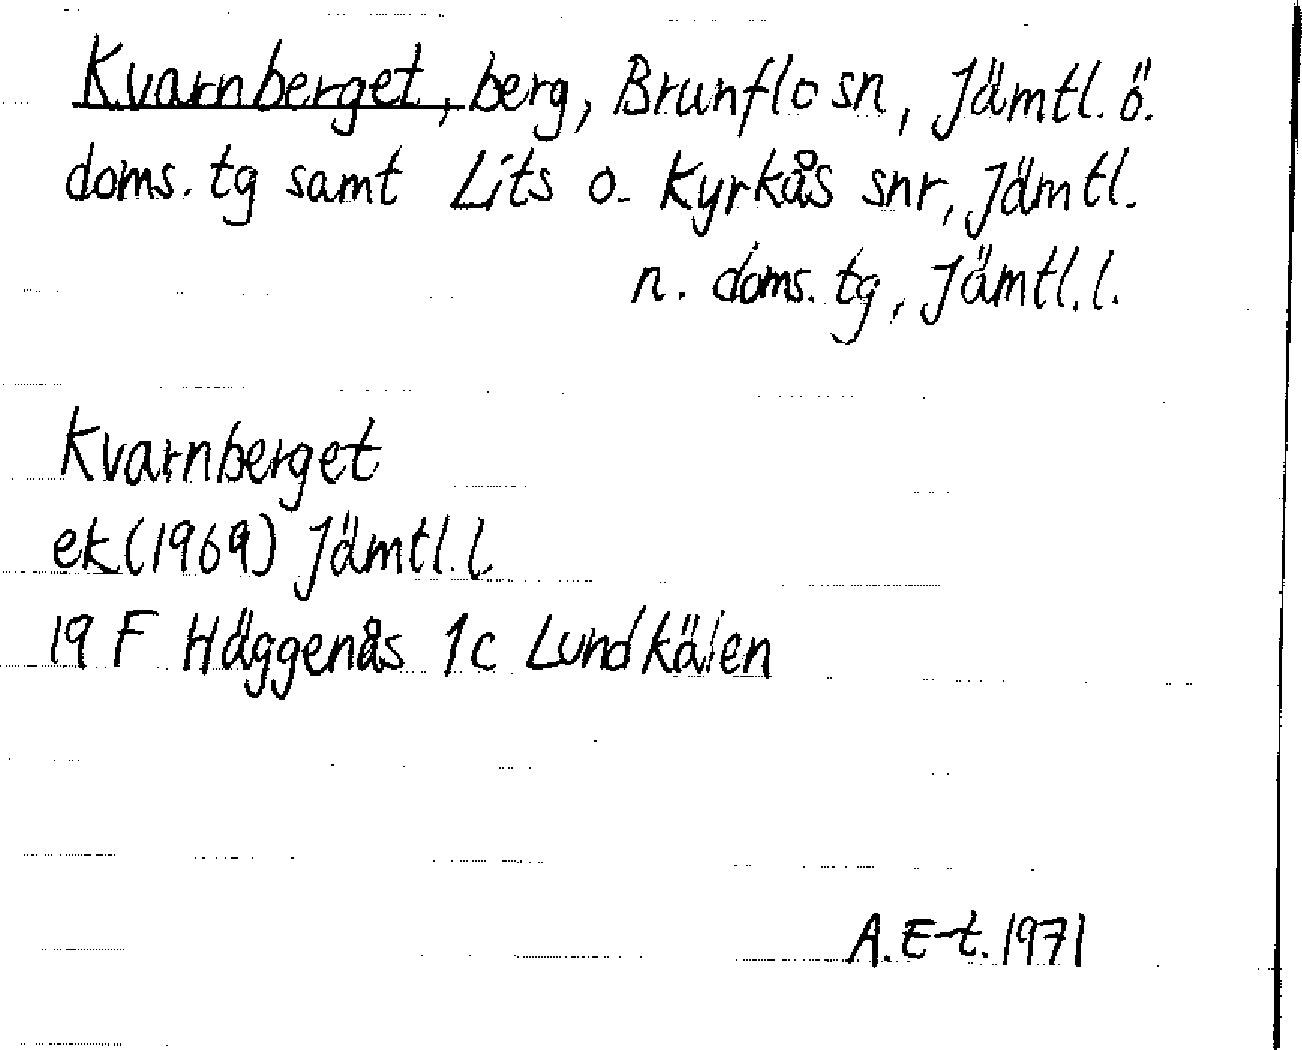 Kvarnberget, berg, Brunflo sn, Jämtl. ö.
doms. tg samt Lits o. Kyrkås snr, Jämtl.
n. doms. tg, Jämtl. l.
Kvarnberget
ek (1969) Jämtl. l.
19 F Häggenås 1c Lundkälen
A. E-t. 1971